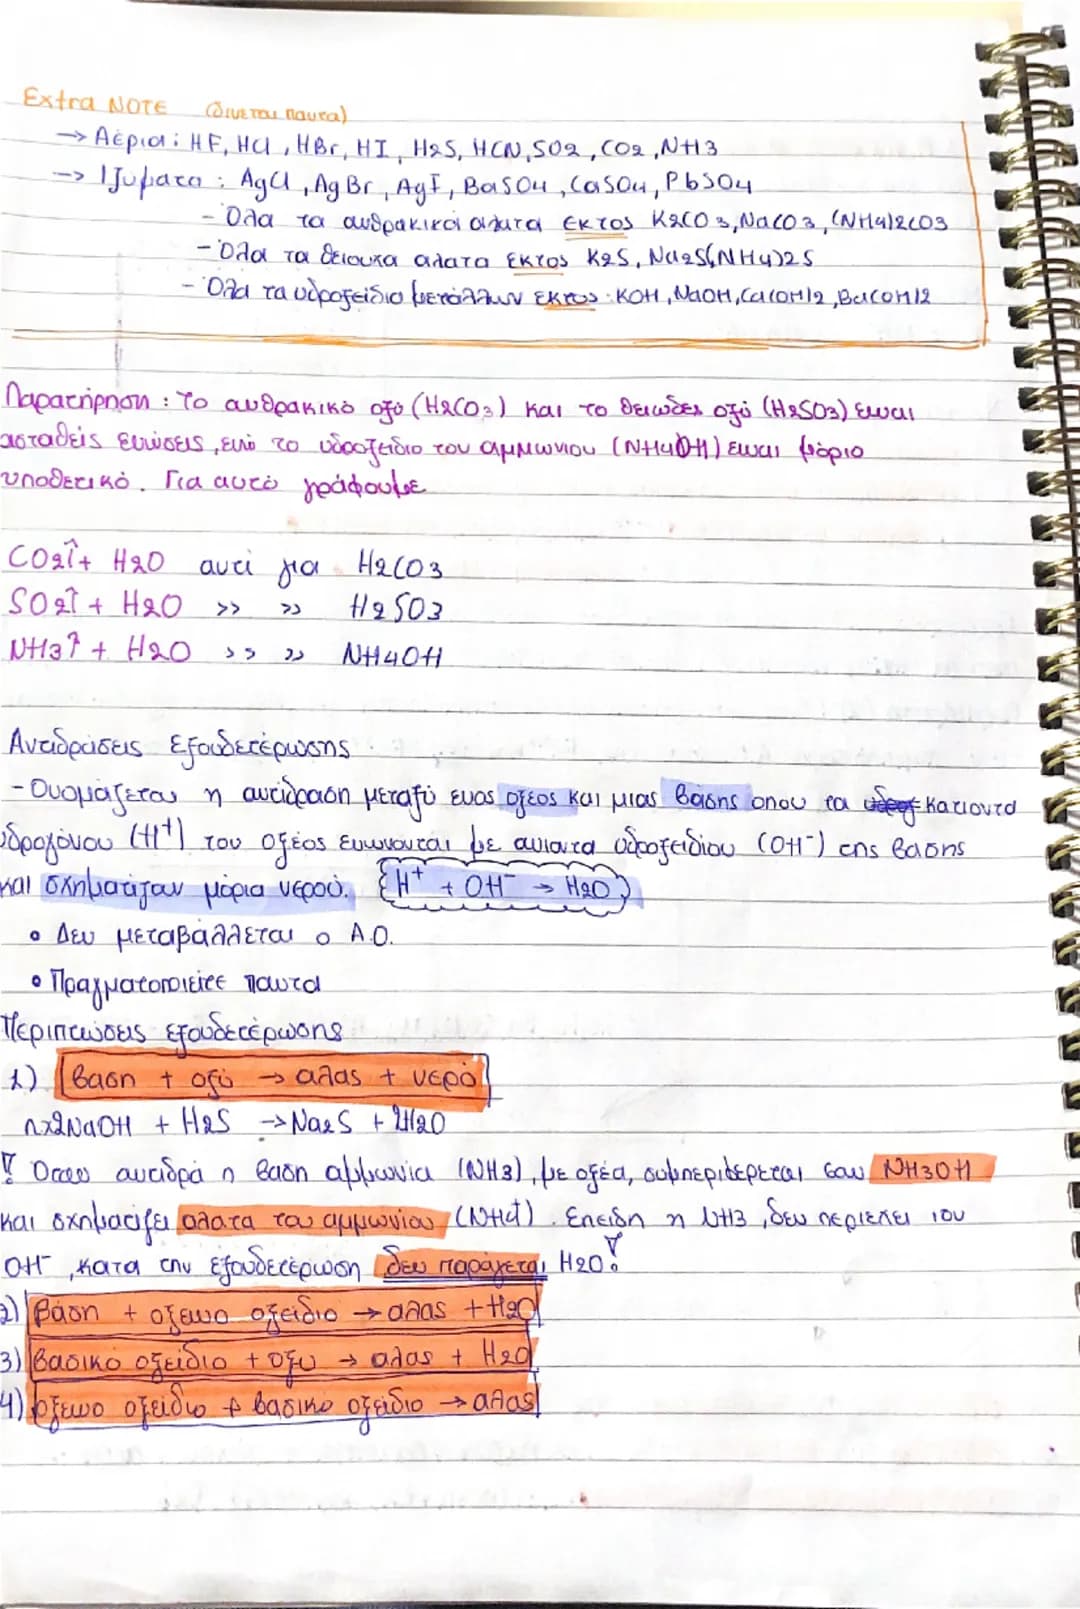 Extra NOTE (δινεται παντα)
→ Αέρια : HF, HCl, HBr, HI, H2S, HCN, SO2, CO2, NH3
→ Ιζηματα : AgCl, AgBr, AgI, BaSO4, CaSO4, PbSO4
- Όλα τα ανθρακικά αλατα εκτος K2CO3, NaCO3, (NH4)2CO3
- Όλα τα θειουχα αλατα εκτος K2S, Na2S, (NH4)2S
- Όλα τα υδροξείδια μετάλλων εκτος : KOH, NaOH, Ca(OH)2, Ba(OH)2
Παρατήρηση : Το ανθρακικό οξύ (H2CO3) και το θειώδες οξύ (H2SO3) ειναι
ασταθείς ενώσεις, ενώ το υδροξείδιο του αμμωνιου (NH4OH) ειναι μόριο
υποθετικό. Για αυτό γράφουμε
CO2↑ + H2O αντί για H2CO3
SO2↑ + H2O >> >> H2SO3
NH3↑ + H2O >> >> NH4OH
Αντιδράσεις εξουδετέρωσης
- Ονομάζεται η αντίδραση μεταξύ ενος οξεος και μιας βάσης οπου τα κατιοντα
υδρογόνου (H+) του οξέος ενωνονται με ανιοντα υδροξειδίου (OH-) της βασης
και σχηματίζουν μόρια νερού. H+ + OH- → H2O
• Δεν μεταβάλλεται ο Α.Ο.
• Πραγματοποιείτε παντα
Περιπτώσεις εξουδετέρωσης
1) βαση + οξύ → αλας + νερό
πχ 2NaOH + H2S → Na2S + 2H2O
! Όταν αντιδρά η βαση αμμωνία (NH3), με οξέα, συμπεριφέρεται σαν NH3OH
και σχηματίζει αλατα του αμμωνίου (NH4+). Επειδη η NH3, δεν περιεχει ιον
OH-, κατα την εξουδετέρωση δεν παράγεται H2O!
2) βάση + οξεινο οξείδιο → αλας + H2O
3) βασικό οξείδιο + οξυ → αλας + H2O
4) οξεινο οξείδιο + βασικο οξείδιο → αλας